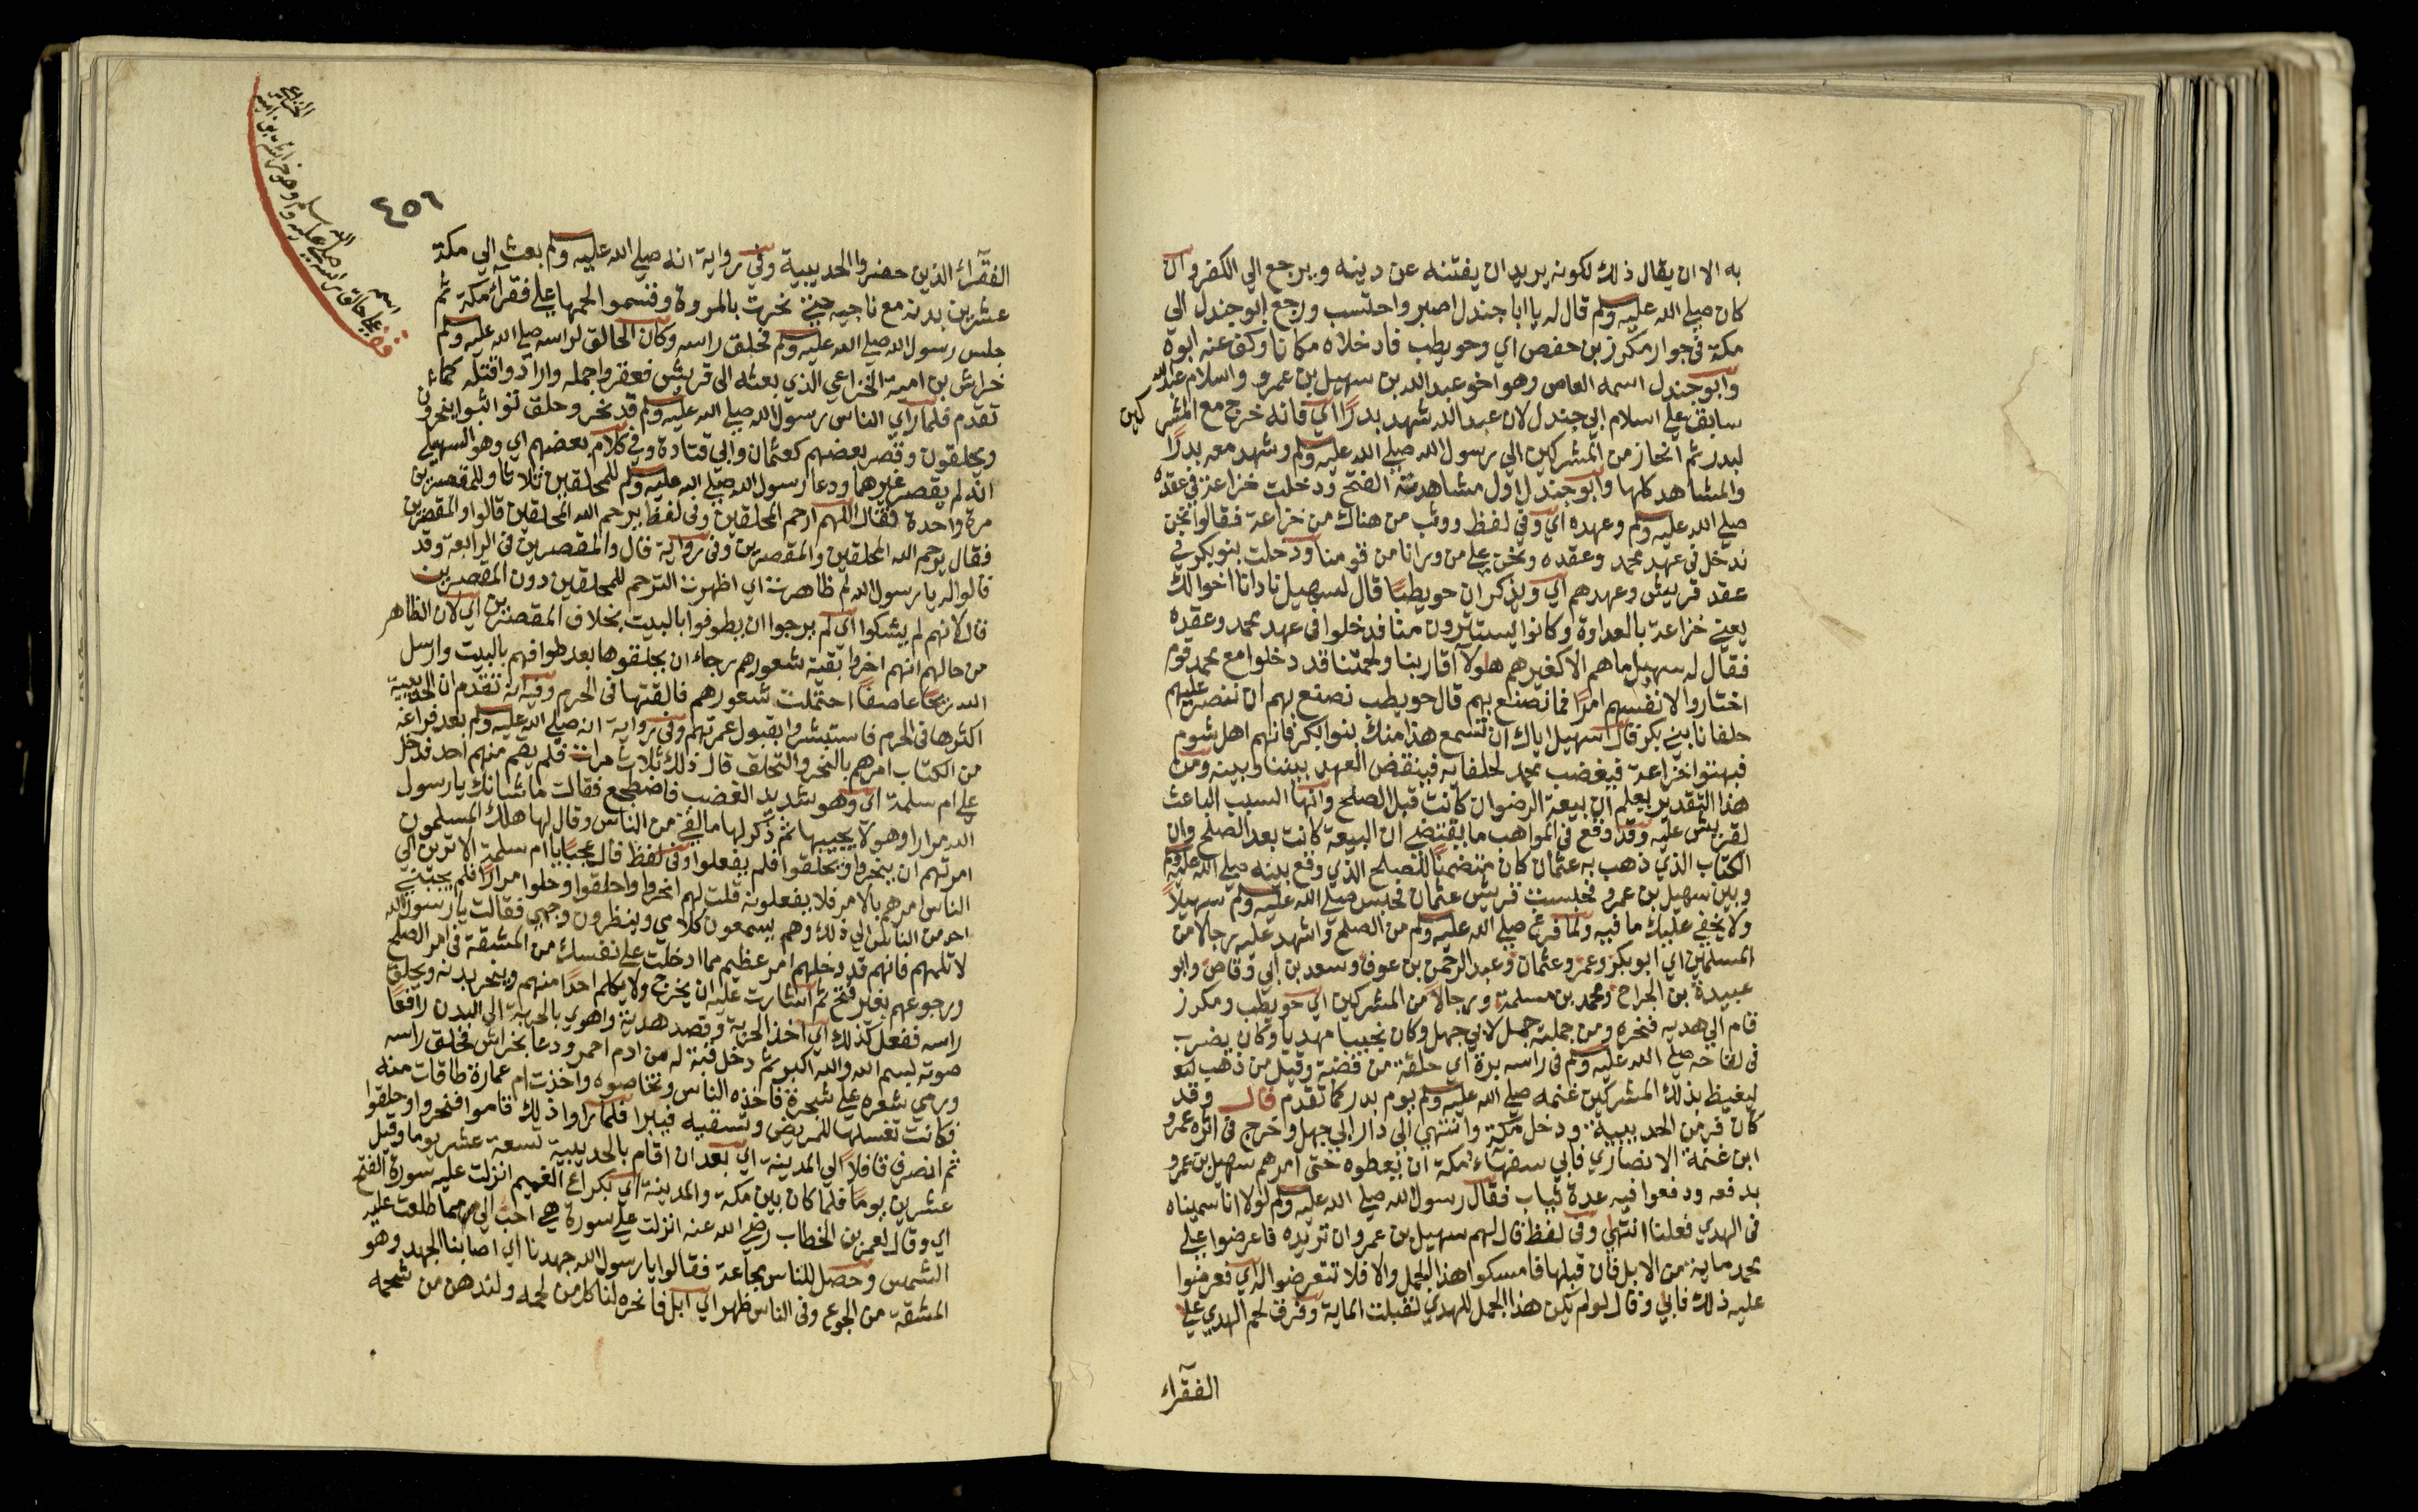 به الا ان يقال ذلك لكونه يريد ان يفتنه عن دينه ويرجع الي الكفر وان
كان صلي الله عليه وسلم قال له يا ابا جندل اصبر واحتسب ورجع ابو جندل الي
مكة في جوار مكرز بن حفص اي وحويطب فادخلاه مكانا وكف عنه ابوه
وابو جندل اسمه العاص وهو اخو عبد الله بن سهيل بن عمرو واسلام عبد الله
سابق علي اسلام ابي جندل لان عبد الله شهد بدرًا اي فانه خرج مع المشركين
لبدر ثم انحاز من المشركين الي رسول الله صلي الله عليه وسلم وشهد معه بدرًا
والمشاهد كلها وابو جندل اول مشاهده الفتح ودخلت خزاعة في عقده
صلي الله عليه وسلم وعهده اي وفي لفظ ووثب من هناك من خزاعة فقالوا نحن
ندخل في عهد محمد وعقده ونحن علي من ورانا من قومنا ودخلت بنو بكر في
عقد قريش وعهدهم اي ويذكر ان حويطبًا قال لسهيل نادانا اخوالك
يعني خزاعة بالعداوة وكانوا يستترون منا فدخلوا في عهد محمد وعقده
فقال له سهيل ما هم الا كغيرهم هولا اقاربنا ولحمتنا قد دخلوا مع محمد قوم
اختاروا لانفسهم امرًا فما نصنع بهم قال حويطب نصنع بهم ان ننصر عليهم
حلفانا بني بكر قال سهيل اياك ان تسمع هذا منك بنوا بكر فانهم اهل شوم
فيهنوا خزاعة فيغضب محمد لحلفايه فينقض العهد بيننا وبينه ومن
هذا التقدير يعلم ان بيعة الرضوان كانت قبل الصلح وانها السبب الباعث
لقريش عليه وقد وقع في المواهب ما يقتضي ان البيعة كانت بعد الصلح وان
الكتاب الذي ذهب به عثمان كان متضمنًا للصلح الذي وقع بينه صلي الله عليه وسلم
وبين سهيل بن عمرو فحبست قريش عثمان فحبس صلي الله عليه وسلم سهيلاً
ولا يخفي عليك ما فيه ولما فرغ صلي الله عليه وسلم من الصلح واشهد عليه رجالا من
المسلمين اي ابو بكر وعمر وعثمان وعبد الرحمن بن عوف وسعد بن ابي وقاص وابو
عبيدة بن الجراح ومحمد بن مسلمة ورجالاً من المشركين اي حويطب ومكرز
قام الي هديه فنحره ومن جملته جمل لابي جهل وكان نجيبا مهديا وكان يضرب
في لقاحه صلي الله عليه وسلم في راسه برة اي حلقة من فضة وقيل من ذهب
ليغيظ بذلك المشركين غنمه صلي الله عليه وسلم يوم بدر كما تقدم قال وقد
كان فر من الحديبية ودخل مكة وانتهي الي دار ابي جهل وخرج في اثره عمرو
ابن غنمة الانصاري فابي سفهاء مكة ان يعطوه حتي امرهم سهيل بن عمرو
بدفعه ودفعوا فيه عدة ثياب فقال رسول الله صلي الله عليه وسلم لولا انا سميناه
في الهدي فعلنا انتهي وفي لفظ قال لهم سهيل بن عمرو ان تريده فاعرضوا علي
محمد ماية من الابل فان قبلها فامسكوا هذا الجمل والا فلا تتعرضوا له اي فعرضوا
عليه ذلك فابي وقال لو لم يكن هذا الجمل للهدي لقبلت الماية وفرق لحم الهدي علي
الفقراء
٤٥٦
الفقراء الذين حضروا الحديبية وفي رواية انه صلي الله عليه وسلم بعث الي مكة
عشرين بدنة مع ناجيه حتي نحرت بالمروة وقسموا لحمها علي فقراء مكة ثم
جلس رسول الله صلي الله عليه وسلم فحلق راسه وكان الحالق لراسه صلي الله عليه وسلم
خراش بن امية الخزاعي الذي بعثه الي قريش فعقروا جمله وارادوا قتله كما
تقدم فلما راي الناس رسول الله صلي الله عليه وسلم قد نحر وحلق تواثبوا ينحرون
ويحلقون وقصر بعضهم كعثمان وابي قتادة وفي كلام بعضهم اي وهو السهيلي
انه لم يقصر غيرهما ودعا رسول الله صلي الله عليه وسلم للمحلقين ثلاثا وللمقصرين
مرة واحدة فقال اللهم ارحم المحلقين وفي لفظ يرحم الله المحلقين قالوا والمقصرين
فقال يرحم الله المحلقين والمقصرين وفي رواية قال والمقصرين في الرابعة وقد
قالوا له يا رسول الله لم ظاهرت اي اظهرت الترحم للمحلقين دون المقصرين
قال لانهم لم يشكوا اي لم يرجوا ان يطوفوا بالبيت بخلاف المقصرين اي لان الظاهر
من حالهم انهم اخروا بقية شعورهم رجاء ان يحلقوها بعد طوافهم بالبيت وارسل
الله ريحًا عاصفًا احتملت شعورهم فالقتها في الحرم وفيه انه تقدم ان الحديبية
اكثرها في الحرم فاستبشروا بقبول عمرتهم وفي رواية انه صلي الله عليه وسلم بعد فراغه
من الكتاب امرهم بالنحر والتحلق قال ذلك ثلاث مرات فلم يقم منهم احد فدخل
علي ام سلمة اي وهو شديد الغضب فاضطجع فقالت ما شانك يا رسول
الله مرارا وهو لا يجيبها ثم ذكر لها ما لقي من الناس وقال لها هلك المسلمون
امرتهم ان ينحروا ويحلقوا فلم يفعلوا وفي لفظ قال عجبًا يا ام سلمة الا ترين الي
الناس امرهم بالامر فلا يفعلونه قلت لهم انحروا واحلقوا وحلوا مرارًا فلم يجبني
احد من الناس الي ذلك وهم يسمعون كلامي وينظرون وجهي فقالت يا رسول الله
لا تلمهم فانهم قد دخلهم امر عظيم مما ادخلت علي نفسك من المشقة في امر الصلح
ورجوعهم بغير فتح ثم اشارت عليه ان يخرج ولا يكلم احدًا منهم وينحر بدنه ويحلق
راسه ففعل كذلك اي اخذ الحربة وقصد هديه واهوي بالحربة الي البدن رافعًا
صوته بسم الله والله اكبر ثم دخل قبة له من ادم احمر ودعا بخراش فحلق راسه
ورمي شعره علي شجرة فاخذه الناس وتخاصوه واخذت ام عمارة طاقات منه
فكانت تغسلها للمريض وتسقيه فيبرا فلما راوا ذلك قاموا فنحروا وحلقوا
ثم انصرف قافلاً الي المدينة اي بعد ان اقام بالحديبية تسعة عشر يوما وقيل
عشرين يومًا فلما كان بين مكة والمدينة اي بكراع الغميم انزلت عليه سورة الفتح
اي وقال لعمر بن الخطاب رضي الله عنه انزلت علي سورة هي احب الي مما طلعت عليه
الشمس وحصل للناس مجاعة فقالوا يا رسول الله جهدنا اي اصابنا الجهد وهو
المشقة من الجوع وفي الناس ظهر اي ابل فانحره لناكل من لحمه ولندهن من شحمه